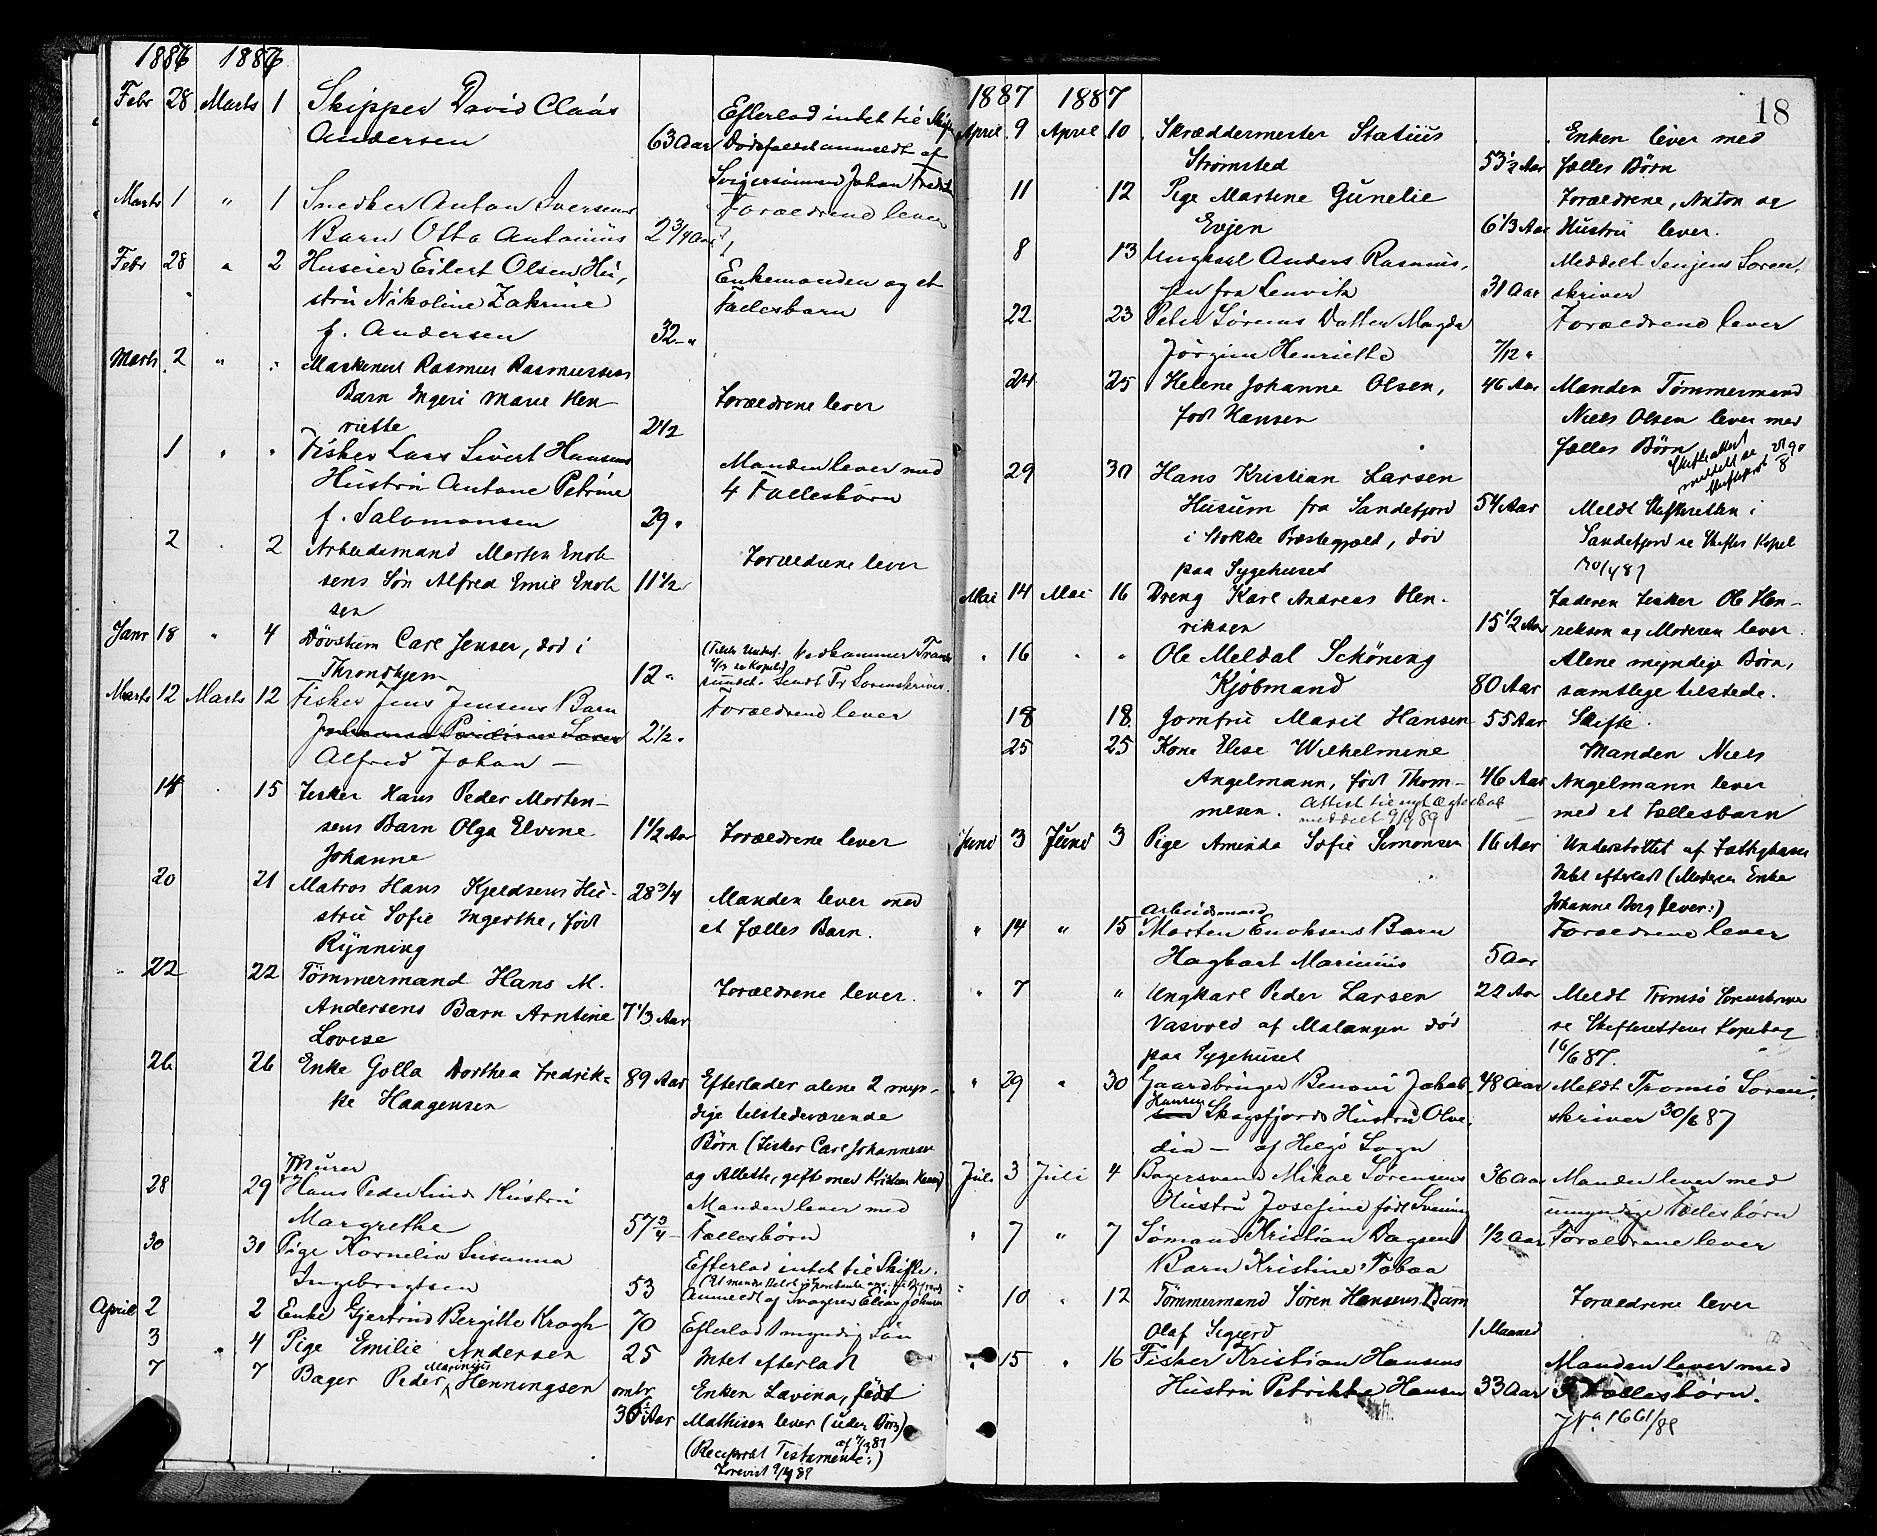 1887 1887
Febr 28 Marts 1 Skipper David Claas
Andersen 63 Aar
Efterlod intet til Skifte
Dødsfaldet anmeldt af
Svigersønnen Johan
Marts 1 " 1 Snedker Anton Iversens
Barn Otto Antonius 2 3/4 Aar
Forældrene lever
Febr 28 " 2 Huseier Eilert Olsen Hu-
stru Nikoline Zakrine
f. Andersen 32 "
Enkemanden og et
Fællesbarn
Marts 2 " " Maskinist Rasmus Rasmussens
Barn Ingeri Marie Hen-
riette 2 1/2
Forældrene lever
1 " " Fisker Lars Sivert Hansens
Hustru Antone Petrine
f. Salomonsen 29 "
Manden lever med
4 Fællesbørn
2 2 Arbeidsmand Morten Enok-
sens Søn Alfred Emil Enok-
sen 11 1/2
Forældrene lever
Janr 18 " 4 Døvstum Carl Jensen, død i
Throndhjem 12 "
Sendt Tr Sorenskriver
Marts 12 Marts 12 Fisker Jens Jensens Barn
Alfred Johan — 2 1/2 "
Forældrene lever
14 15 Fisker Hans Peder Morten-
sens Barn Olga Elvine
Johanne 1 1/2 Aar
Forældrene lever
20 21 Matros Hans Kjeldsens Hu-
stru Sofie Ingerthe, født
Rynning 28 3/4
Manden lever med
et fælles Barn.
22 22 Tømmermand Hans M.
Andersens Barn Arntine
Lovise 7 1/3 Aar
Forældrene lever.
26 26 Enke Golla Dorthea Fredrik-
ke Haagensen 89 Aar
Efterlader alene 2 myn-
dige tilstedeværende
Børn (Fisker Carl Johannesen
og Alette, gift med Kristian Hansen)
28 29 Murer
Hans Peder Linds Hustru
Margrethe 57 3/4
Manden lever med
Fællesbørn
30 30 Pige Kornelia Susanna
Ingebrigtsen 53
Efterlod intet til Skifte.
Anmeldt af Svogeren Elias Johnsen
April 2 2 Enke Gjertrud Bergitte Krogh 70
Efterlod 1 myndig Søn
3 " 4 Pige Emilie Andersen 25 Intet efterladt
7 7 Bager Peder Marinius Henningsen omtr
36 Aar
Enken Lavina, født
Mathisen lever (uden Børn)
(Reciprokt Testamente af 7/9 81:)
Forevist 9/4 87
18
1887 1887
April 9 April 10 Skræddermester Statius
Strømsted 53 1/2 Aar
Enken lever med
fælles Børn
11 12 Pige Martene Gunelie
Evjen 6 1/3 Aar
Forældrene, Anton og
Hustru lever.
8 13 Ungkarl Anders Rasmus-
sen fra Lenvik 31 Aar
Meddelt Senjens Soren-
skriver
22 23 Peter Sørens Datter Magda
Jørgine Henriette 7/12 "
Forældrene lever
24 25 Helene Johanne Olsen,
født Hansen 46 Aar
Manden Tømmermand
Niels Olsen lever med
fælles Børn
29 30 Hans Kristian Larsen
Husum fra Sandefjord
i Stokke Præstegjæld, død
paa Sygehuset 54 Aar
Meldt Skifteretten i
Sandefjord se Skiftes Kopeb
30/4 87
Mai 14 Mai 16 Dreng Karl Andreas Hen-
riksen 15 1/2 Aar
Faderen Fisker Ole Hen-
riksen og Moderen lever.
" 16 " " Ole Meldal Schöning
Kjøbmand 80 Aar
Alene myndige Børn,
samtlige tilstede.
18 18 Jomfru Marit Hansen 55 Aar Skifte.
25 25 Kone Elise Wilhelmine
Angelmann, født Thom-
mesen. 46 Aar
Attest til nyt Ægteskab
meddelt 9/9 89
Manden Niels
Angelmann lever
med et Fællesbarn
Juni 3 Juni 3 Pige Aminda Sofie Simonsen 16 Aar
Understøttet af Fattigkassen
Intet efterladt (Moderen Enke
Johanne Berg lever:)
" 14 " 15 Arbeidsmand
Morten Enoksens Barn
Hagbart Marinius 5 Aar
Forældrene lever
" 7 " Ungkarl Peder Larsen
Vasvold af Malangen død
paa Sygehuset 22 Aar
Meldt Tromsø Sorenskriver
se Skifterettens Kopebog
16/6 87.
" 29 " 30 Gaardbruger Benoni Jakob
Hansen Skogsfjords Hustru Olve-
dia — af Helgø Sogn 48 Aar
Meldt Tromsø Soren-
skriver 30/6 87
Juli 3 Juli 4 Bagersvend Mikal Sørensens
Hustru Josefine født 36 Aar
Manden lever med
umyndige Fællesbørn
" 7 " 7 Sømand Kristian Dagsens
Barn Kristine Tobaa 1/2 Aar
Forældrene lever
" 10 " 12 Tømmermand Søren Hansens Barn
Olaf Sigurd 1 Maaned
Forældrene lever
" 15 " 16 Fisker Kristian Hansens
Hustru Petrikke Hansen 33 Aar
Manden lever med
Fællesbørn.
1661/88